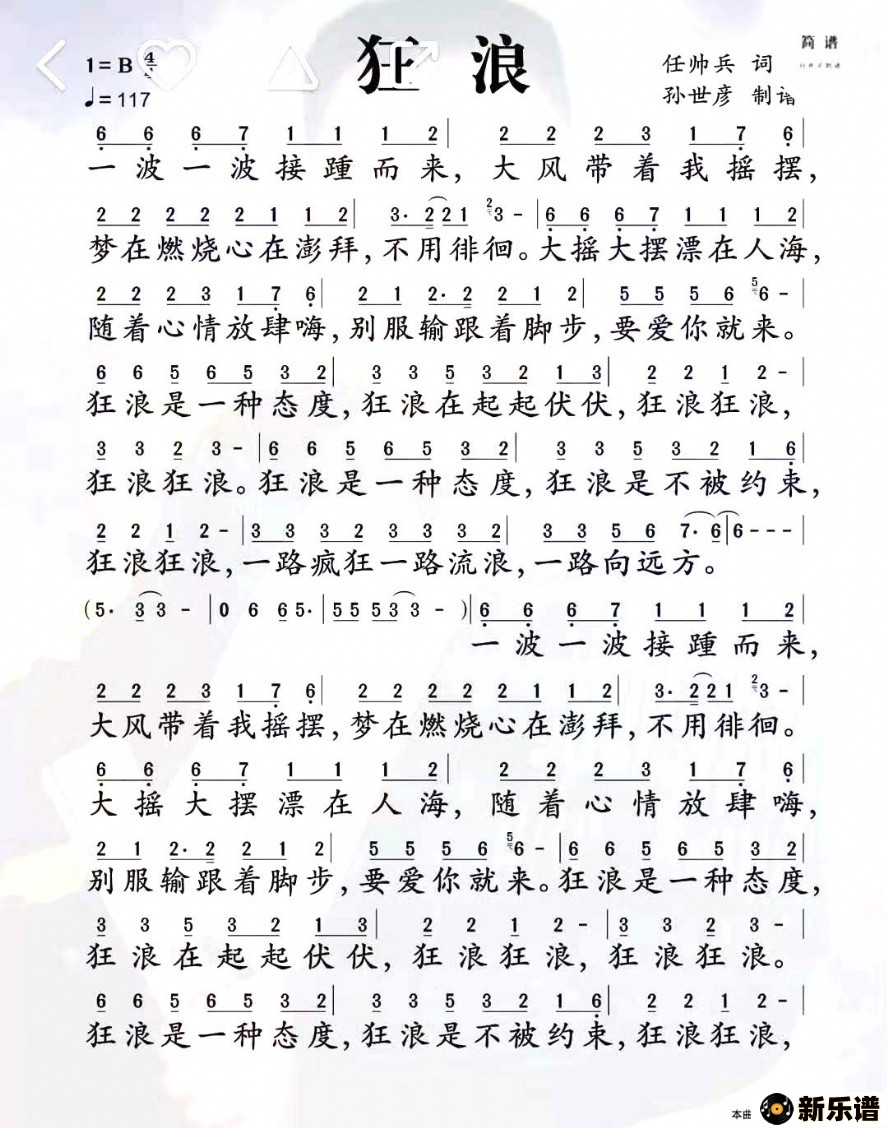 狂浪
简谱
1=B 4
♩=117
任帅兵 词
孙世彦 制谱
6 6 6 7 1 1 1 2 | 2 2 2 3 1 7 6 |
一波一波接踵而来，大风带着我摇摆，
2 2 2 2 2 1 1 2 | 3· 2 2 1 2 3 - | 6 6 6 7 1 1 1 2 |
梦在燃烧心在澎拜，不用徘徊。大摇大摆漂在人海，
2 2 2 3 1 7 6 | 2 1 2· 2 2 1 2 | 5 5 5 6 5 6 - |
随着心情放肆嗨，别服输跟着脚步，要爱你就来。
6 6 5 6 5 3 2 | 3 3 5 3 2 1 3 | 2 2 1 2 - |
狂浪是一种态度，狂浪在起起伏伏，狂浪狂浪，
3 3 2 3 - | 6 6 5 6 5 3 2 | 3 3 5 3 2 1 6 |
狂浪狂浪。狂浪是一种态度，狂浪是不被约束，
2 2 1 2 - | 3 3 3 2 3 3 3 2 | 3 3 5 6 7· 6 | 6 - - - |
狂浪狂浪，一路疯狂一路流浪，一路向远方。
(5· 3 3 - | 0 6 6 5· | 5 5 5 3 3 - ) | 6 6 6 7 1 1 1 2 |
一波一波接踵而来，
2 2 2 3 1 7 6 | 2 2 2 2 2 1 1 2 | 3· 2 2 1 2 3 - |
大风带着我摇摆，梦在燃烧心在澎拜，不用徘徊。
6 6 6 7 1 1 1 2 | 2 2 2 3 1 7 6 |
大摇大摆漂在人海，随着心情放肆嗨，
2 1 2· 2 2 1 2 | 5 5 5 6 5 6 - | 6 6 5 6 5 3 2 |
别服输跟着脚步，要爱你就来。狂浪是一种态度，
3 3 5 3 2 1 3 | 2 2 1 2 - | 3 3 2 3 - |
狂浪在起起伏伏，狂浪狂浪，狂浪狂浪。
6 6 5 6 5 3 2 | 3 3 5 3 2 1 6 | 2 2 1 2 - |
狂浪是一种态度，狂浪是不被约束，狂浪狂浪，
本曲 新乐谱